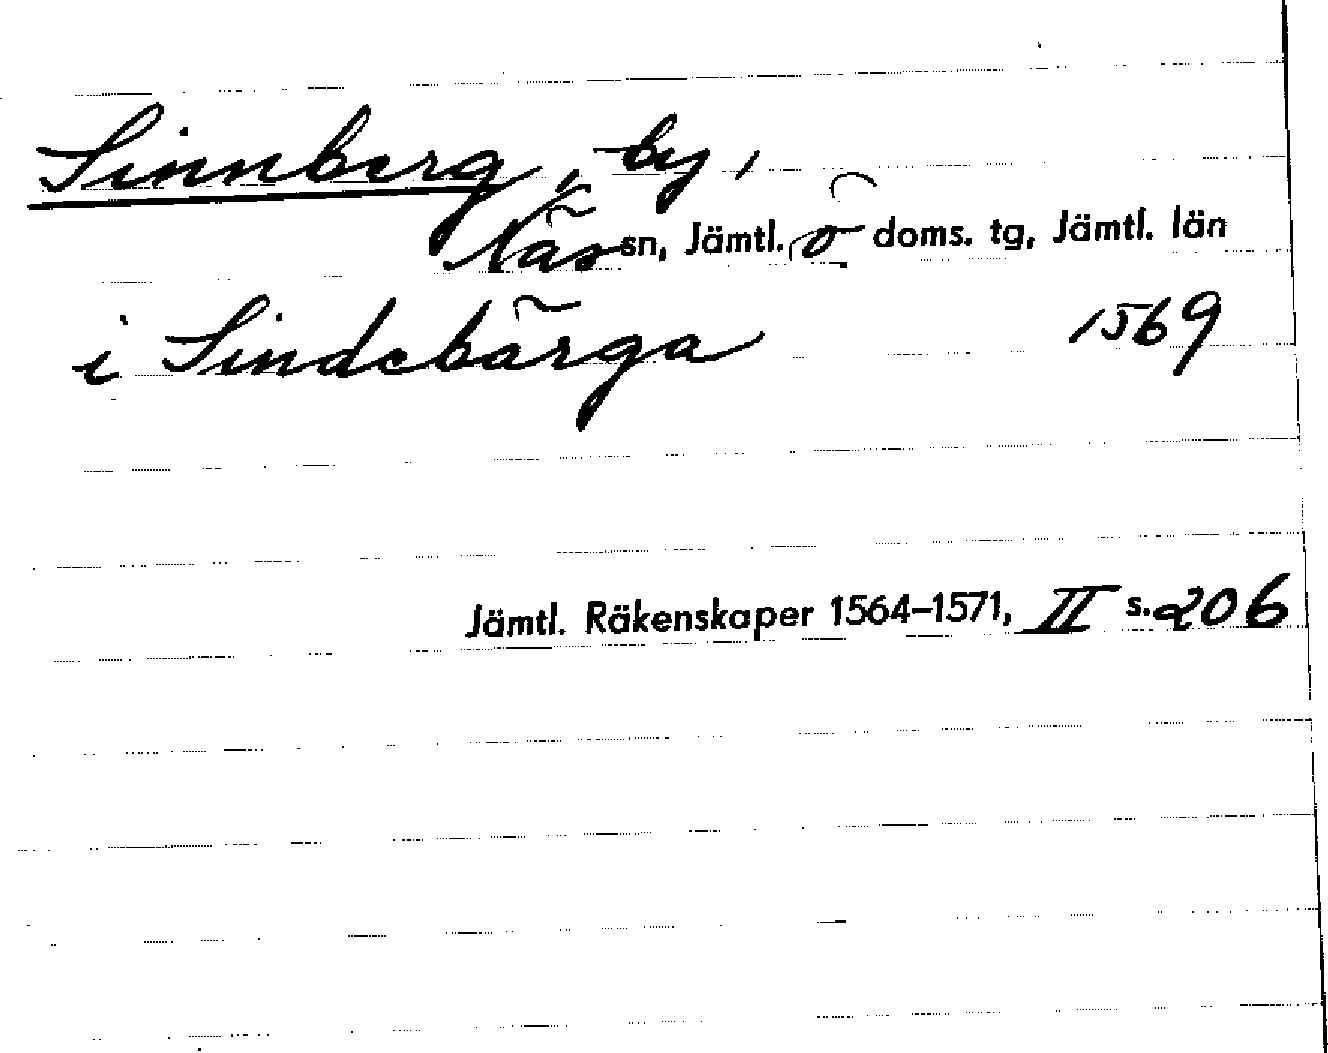 Sinnberg, by,
Näs sn, Jämtl. ö doms. tg, Jämtl. län
i Sindebärga 1569
Jämtl. Räkenskaper 1564-1571, II s. 206